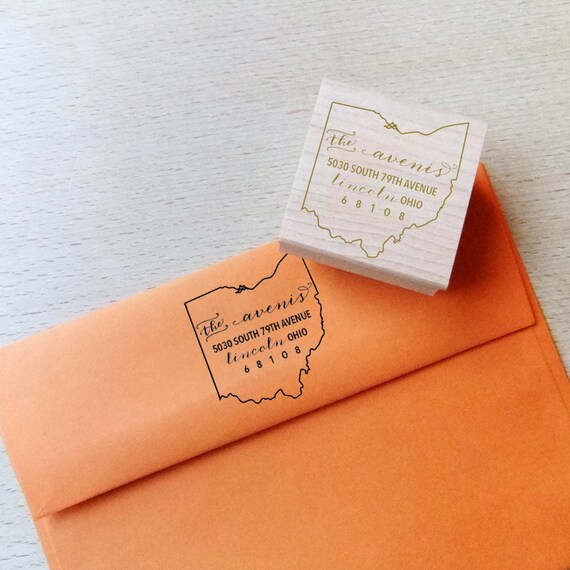 the avenis
5030 SOUTH 79TH AVENUE
lincoln OHIO
68108
the avenis
5030 SOUTH 79TH AVENUE
lincoln OHIO
68108